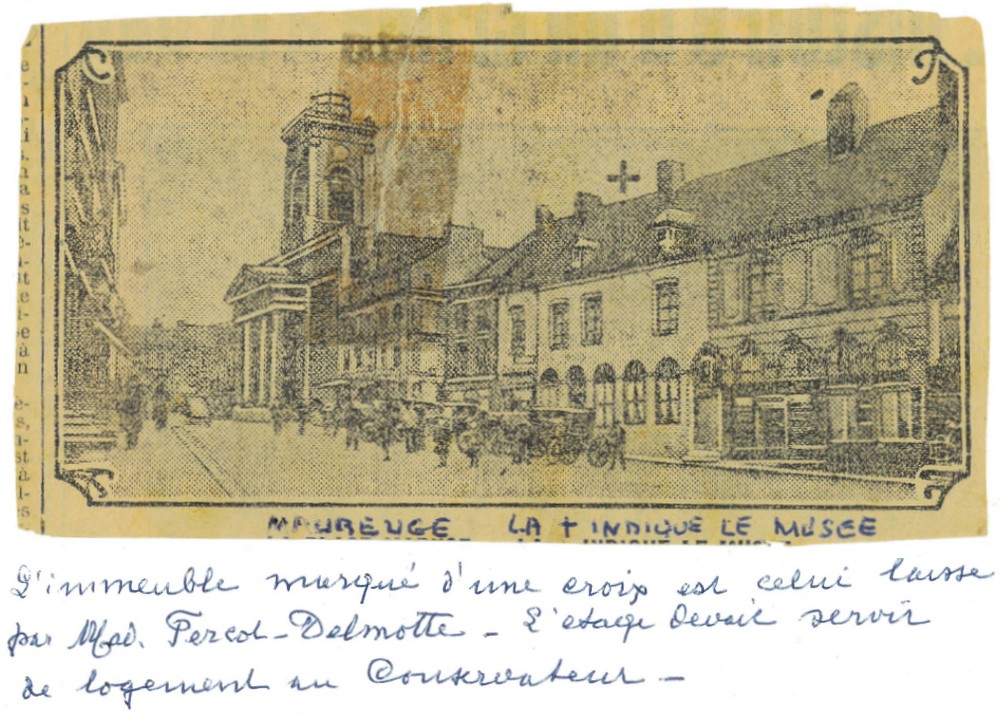 MAUBEUGE LA + INDIQUE LE MUSEE
L'immeuble marqué d'une croix est celui laissé
par Mad. Fercot-Delmotte - L'étage devait servir
de logement au Conservateur -